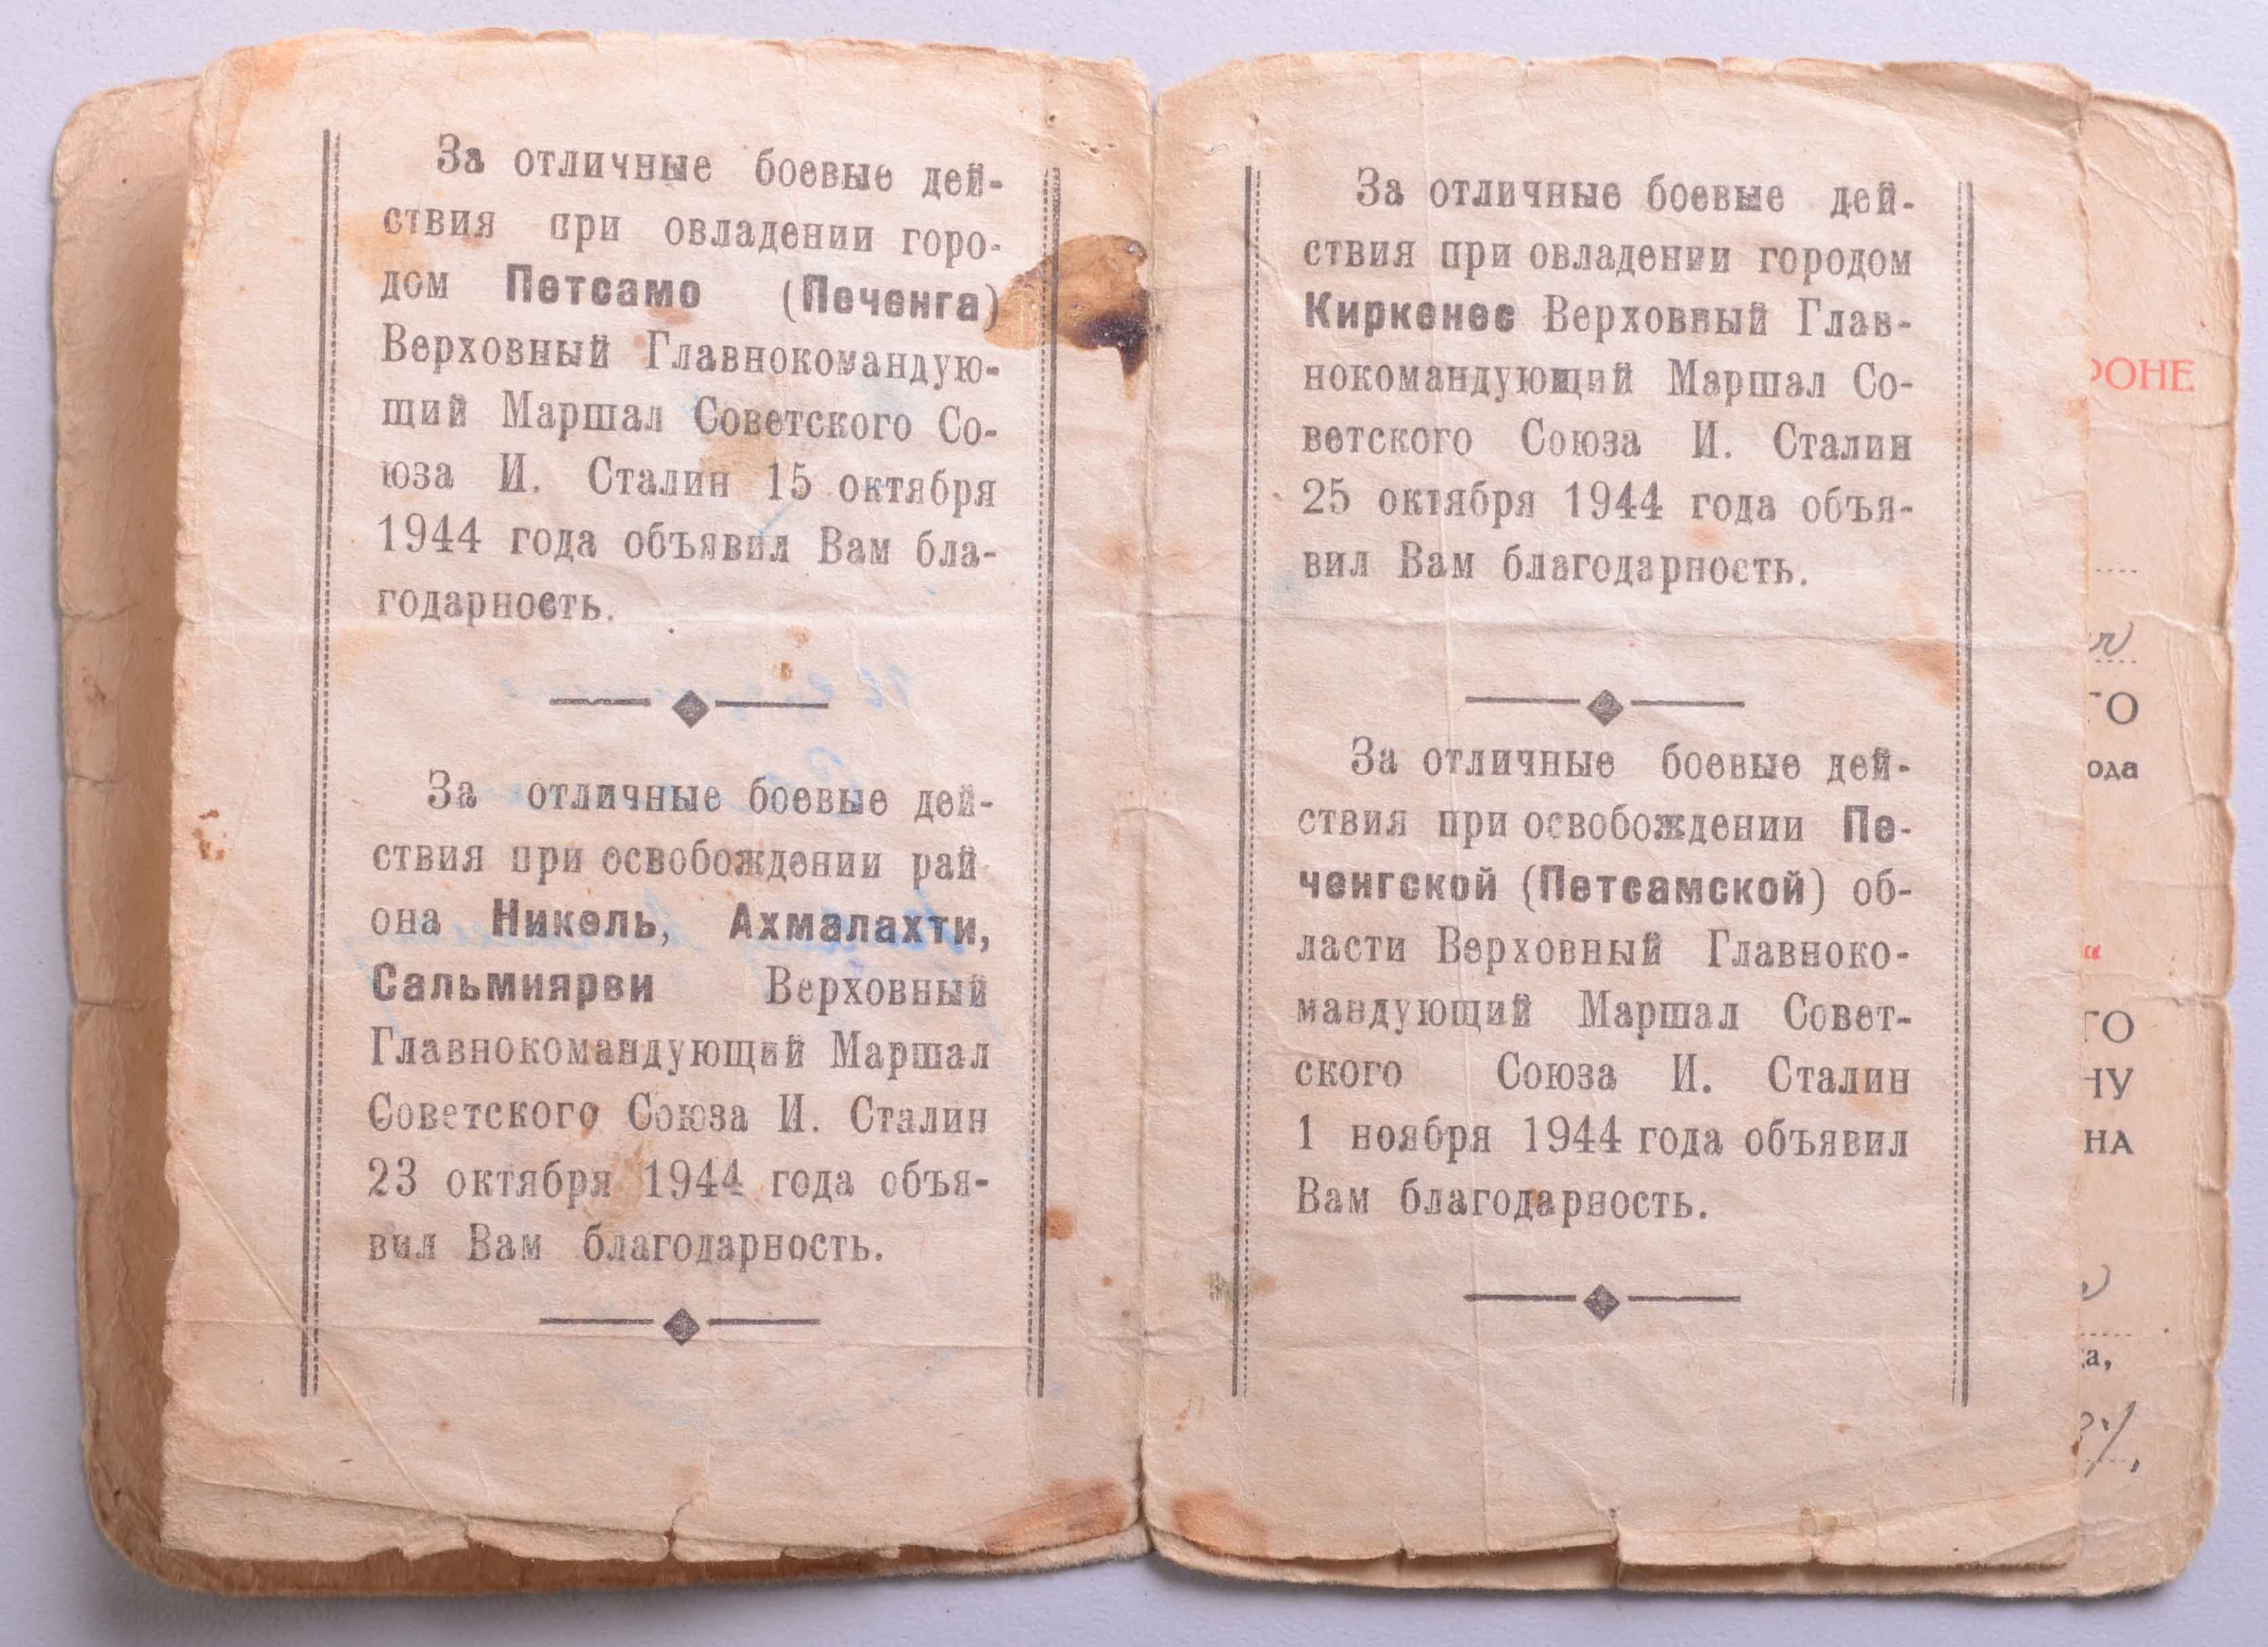 За отличные боевые дей-
ствия при овладении горо-
дом Петсамо (Печенга)
Верховный Главнокомандую-
щий Маршал Советского Со-
юза И. Сталин 15 октября
1944 года объявил Вам бла-
годарность.
За отличные боевые дей-
ствия при освобождении рай
она Никель, Ахмалахти,
Сальмиярви Верховный
Главнокомандующий Маршал
Советского Союза И. Сталин
23 октября 1944 года объя-
вил Вам благодарность.
За отличные боевые дей-
ствия при овладении городом
Киркенес Верховный Глав-
нокомандующий Маршал Со-
ветского Союза И. Сталин
25 октября 1944 года объя-
вил Вам благодарность.
За отличные боевые дей-
ствия при освобождении Пе-
ченгской (Петсамской) об-
ласти Верховный Главноко-
мандующий Маршал Совет-
ского Союза И. Сталин
1 ноября 1944 года объявил
Вам благодарность.
РОНЕ
ГО
ода
“
ГО
НУ
НА
а,